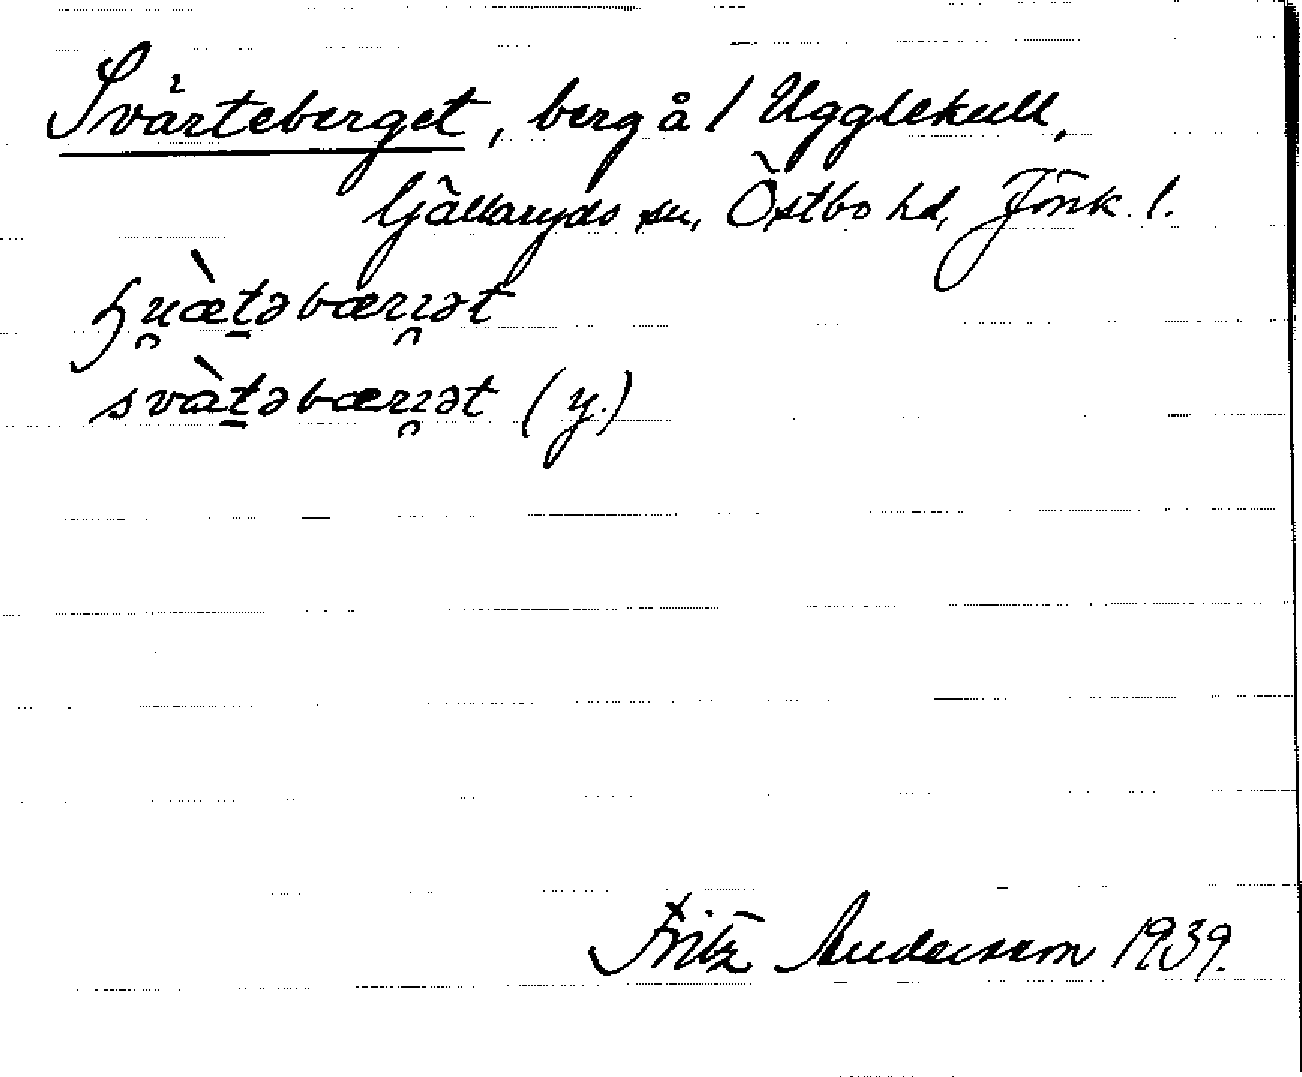 Svärteberget, berg å 1 Ugglekull,
Gällaryds sn, Östbo hd, Jönk. l.
svàt̲əbærɪ̯ət (y.)
Fritz Andersson 1939.